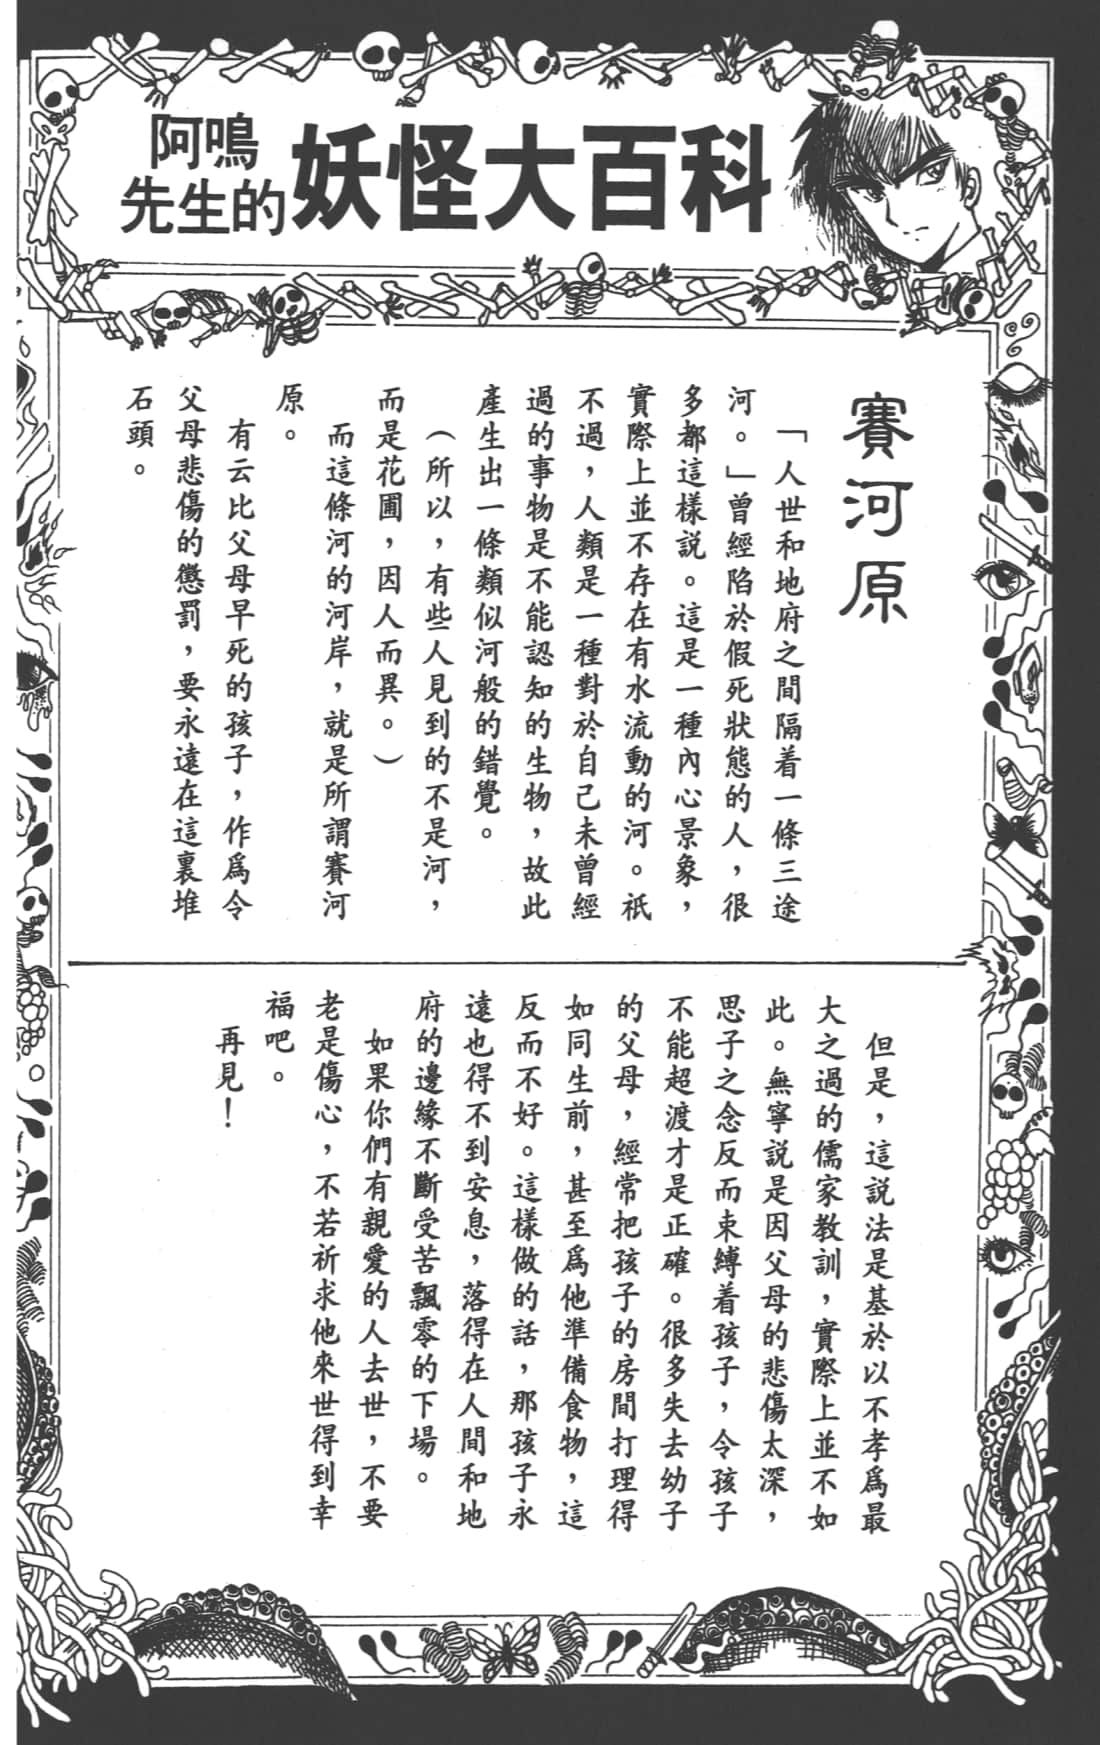 阿鳴
先生的
妖怪大百科
賽河原
「人世和地府之間隔着一條三途
河。」曾經陷於假死狀態的人，很
多都這樣説。這是一種內心景象，
實際上並不存在有水流動的河。祇
不過，人類是一種對於自己未曾經
過的事物是不能認知的生物，故此
產生出一條類似河般的錯覺。
（所以，有些人見到的不是河，
而是花圃，因人而異。）
而這條河的河岸，就是所謂賽河
原。
有云比父母早死的孩子，作爲令
父母悲傷的懲罰，要永遠在這裏堆
石頭。
但是，這説法是基於以不孝爲最
大之過的儒家教訓，實際上並不如
此。無寧説是因父母的悲傷太深，
思子之念反而束縛着孩子，令孩子
不能超渡才是正確。很多失去幼子
的父母，經常把孩子的房間打理得
如同生前，甚至爲他準備食物，這
反而不好。這樣做的話，那孩子永
遠也得不到安息，落得在人間和地
府的邊緣不斷受苦飄零的下場。
如果你們有親愛的人去世，不要
老是傷心，不若祈求他來世得到幸
福吧。
再見！